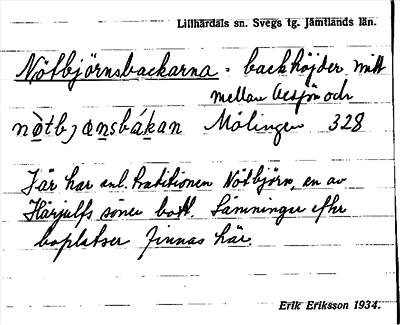 Lillhärdals sn. Svegs tg. Jämtlands län.
Nötbjörnsbackarna = backhöjder mitt
mellan Öesjön och
nòtbjœnsbákan Mölingen 328
Här har enl. traditionen Nötbjörn, en av
Härjulfs söner bott. Lämningar efter
boplatser finnas här.
Erik Eriksson 1934.